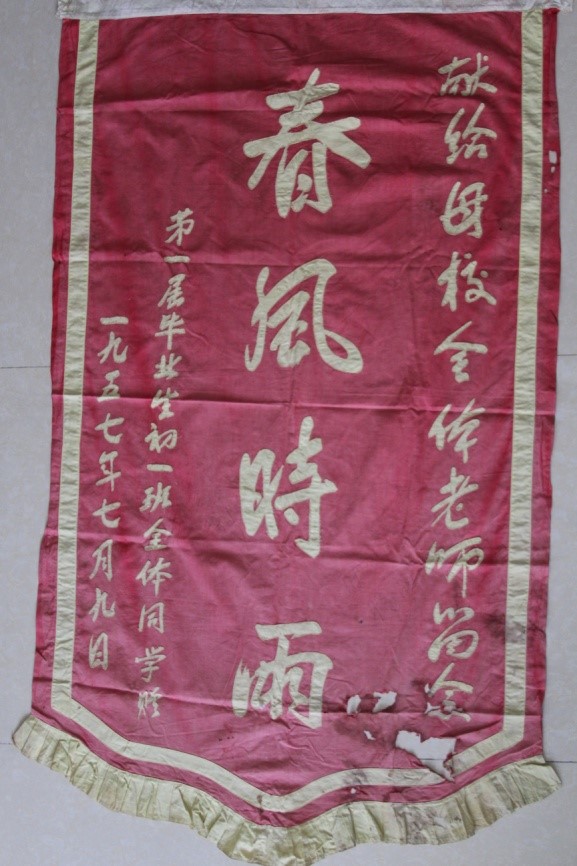 献给母校全体老师留念
春风時雨
第一届毕业生初一班全体同学赠
一九五七年七月九日